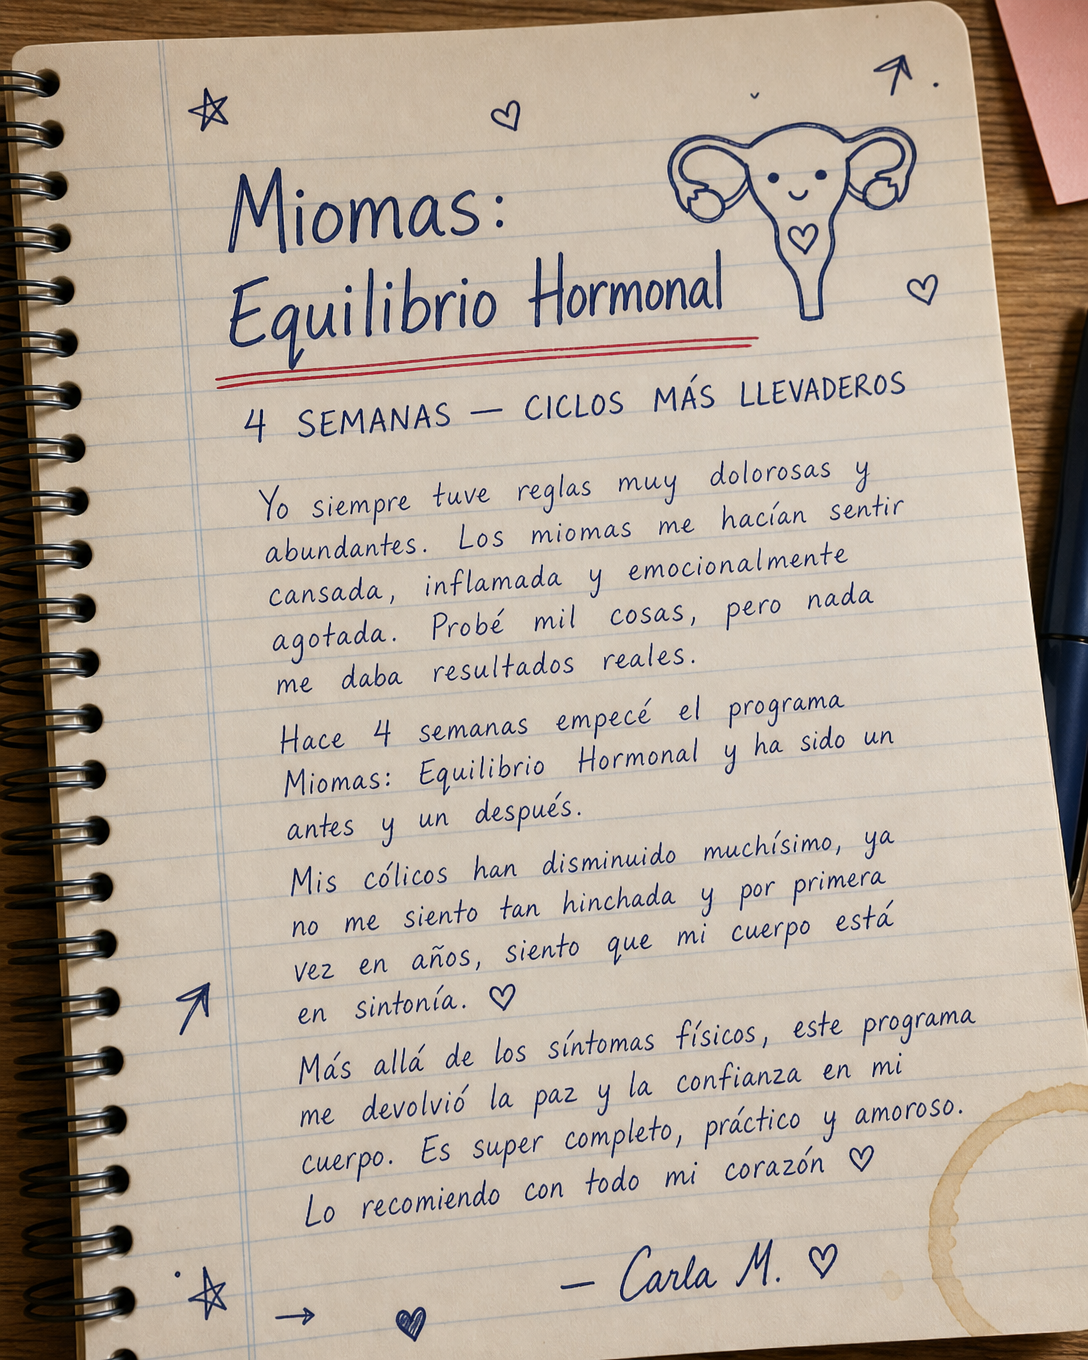 Miomas:
Equilibrio Hormonal
4 SEMANAS — CICLOS MÁS LLEVADEROS
Yo siempre tuve reglas muy dolorosas y
abundantes. Los miomas me hacían sentir
cansada, inflamada y emocionalmente
agotada. Probé mil cosas, pero nada
me daba resultados reales.
Hace 4 semanas empecé el programa
Miomas: Equilibrio Hormonal y ha sido un
antes y un después.
Mis cólicos han disminuido muchísimo, ya
no me siento tan hinchada y por primera
vez en años, siento que mi cuerpo está
en sintonía. ♡
Más allá de los síntomas físicos, este programa
me devolvió la paz y la confianza en mi
cuerpo. Es super completo, práctico y amoroso.
Lo recomiendo con todo mi corazón ♡
— Carla M. ♡